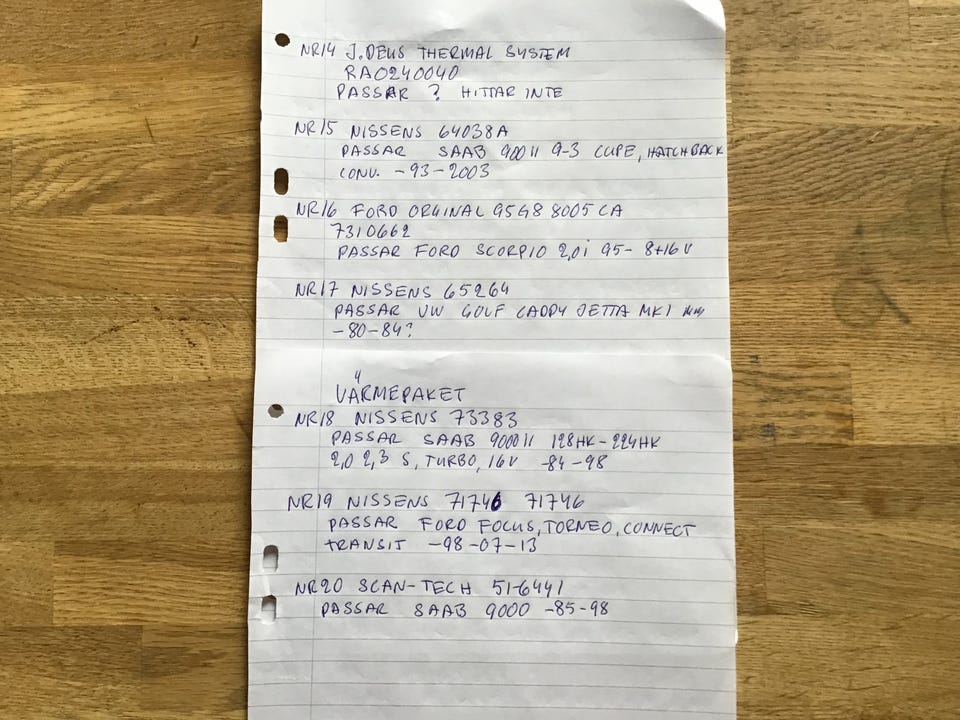 NR14 J.DEUS THERMAL SYSTEM
RA0240040
PASSAR ? HITTAR INTE
NR15 NISSENS 64038A
PASSAR SAAB 900 II 9-3 CUPE, HATCHBACK
CONV. -93-2003
NR16 FORD ORGINAL 95GB 8005 CA
7310662
PASSAR FORD SCORPIO 2,0i 95- 8+16V
NR17 NISSENS 65264
PASSAR VW GOLF CADDY JETTA MK1
-80-84?
VÄRMEPAKET
NR18 NISSENS 73383
PASSAR SAAB 9000 II 128HK-224HK
2,0 2,3 S, TURBO, 16V -84-98
NR19 NISSENS 71746 71746
PASSAR FORD FOCUS, TORNEO, CONNECT
TRANSIT -98-07-13
NR20 SCAN-TECH 51-6441
PASSAR SAAB 9000 -85-98